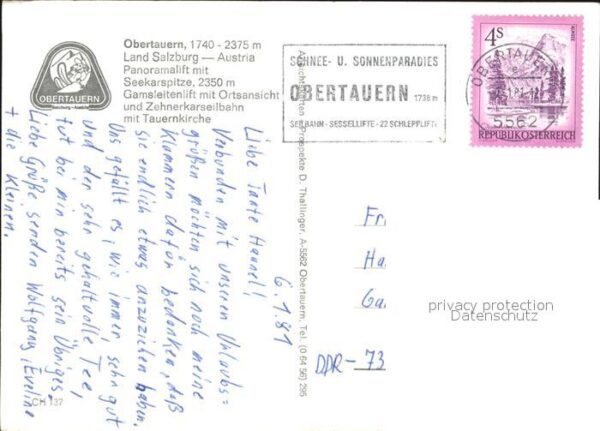 Obertauern, 1740 - 2375 m
Land Salzburg — Austria
Panoramalift mit
Seekarspitze, 2350 m
Gamsleitenlift mit Ortsansicht
und Zehnerkarseilbahn
mit Tauernkirche
OBERTAUERN
SCHNEE- U. SONNENPARADIES
OBERTAUERN 1738 m
SEILBAHN - SESSELLIFTE - 22 SCHLEPPLIFTE
4S
OBERTAUERN
5562
REPUBLIK ÖSTERREICH
Ansichtskarten + Prospekte D. Thallinger, A-5562 Obertauern, Tel. (0 64 56) 295
6.1.81
Liebe Tante Hannel!
Verbunden mit unseren Urlaubs=
grüßen möchten sich noch meine
Klammern dafür bedanken, daß
sie endlich etwas anzuziehen haben.
Uns gefällt es, wie immer sehr gut
und der sehr gehaltvolle Tee,
tut bei mir bereits sein Übriges.
Liebe Grüße senden Wolfgang, Eveline
+ die Kleinen.
Fr.
Ha.
Ga.
DDR - 73
privacy protection
Datenschutz
CH 137